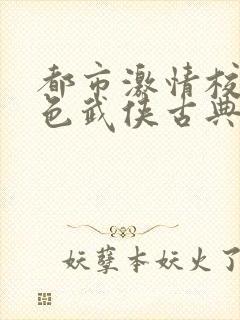 都市激情校
色武侠古典
妖孽本妖火了